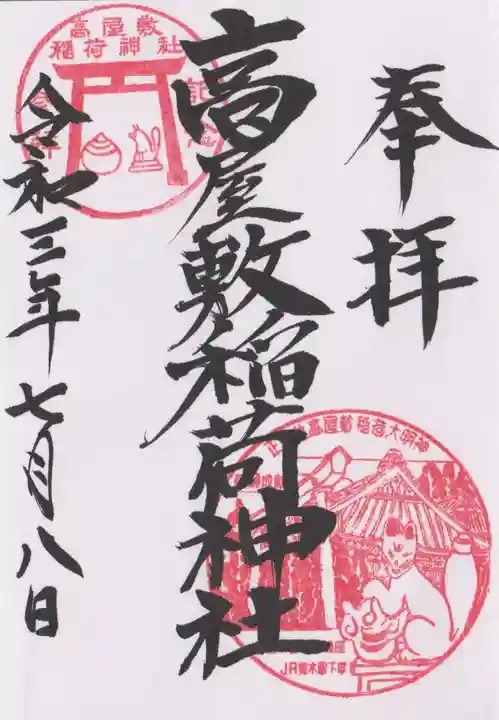 奉拝
高屋敷稲荷神社
令和三年七月八日
高屋敷
稲荷神社
高屋敷稲荷大明神